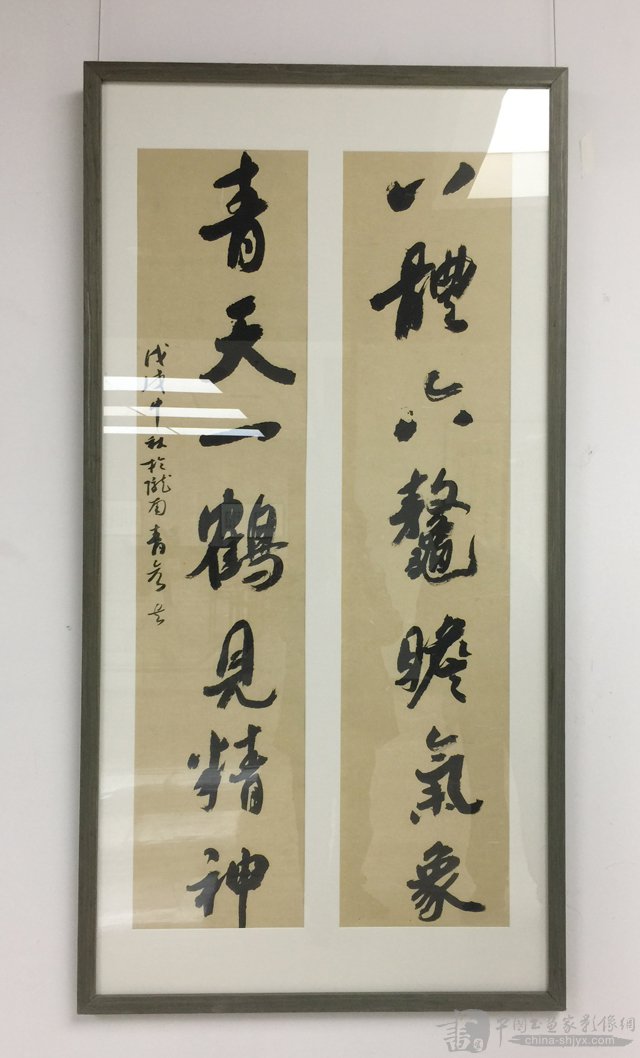 八體六鼇瞻氣象
青天一鶴見精神
戊戌中秋於隴南青
書 中國書畫家影像網
china-shjyx.com